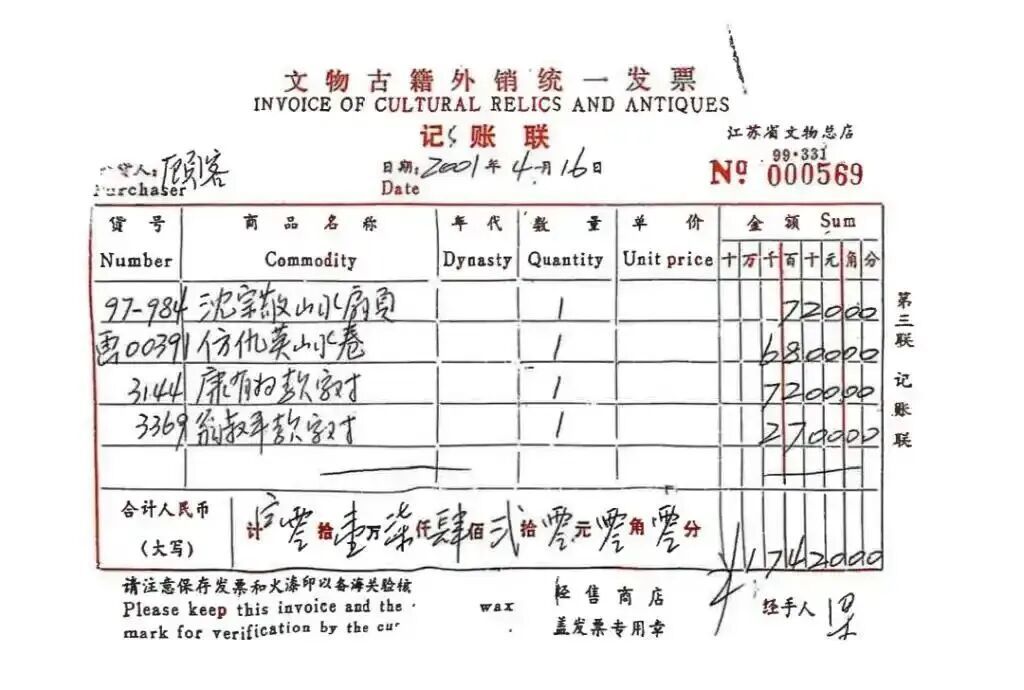 文物古籍外销统一发票
INVOICE OF CULTURAL RELICS AND ANTIQUES
记账联
江苏省文物总店
99·331
№ 000569
货人: 顾客
Purchaser
日期: 2001年4月16日
Date
货号 商品名称 年代 数量 单价 金额 Sum
Number Commodity Dynasty Quantity Unit price 十万千百十元角分
97-984 沈宗敬山水扇页 1 72000
画00391 仿仇英山水卷 1 680000
3144 康有为款字对 1 720000
3369 翁叔平款字对 1 270000
合计人民币 计 零拾壹万柒仟肆佰贰拾零元零角零分
(大写) ¥1742000
第三联 记账联
请注意保存发票和火漆印以备海关验核
Please keep this invoice and the wax
mark for verification by the cu
经售商店
盖发票专用章
经手人